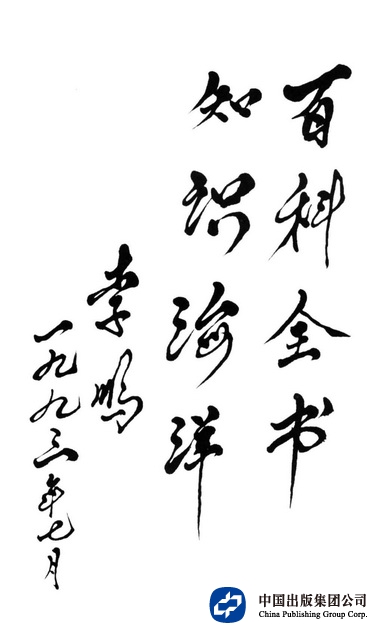 百科全书
知识海洋
李鹏
一九九三年七月
中国出版集团公司
China Publishing Group Corp.